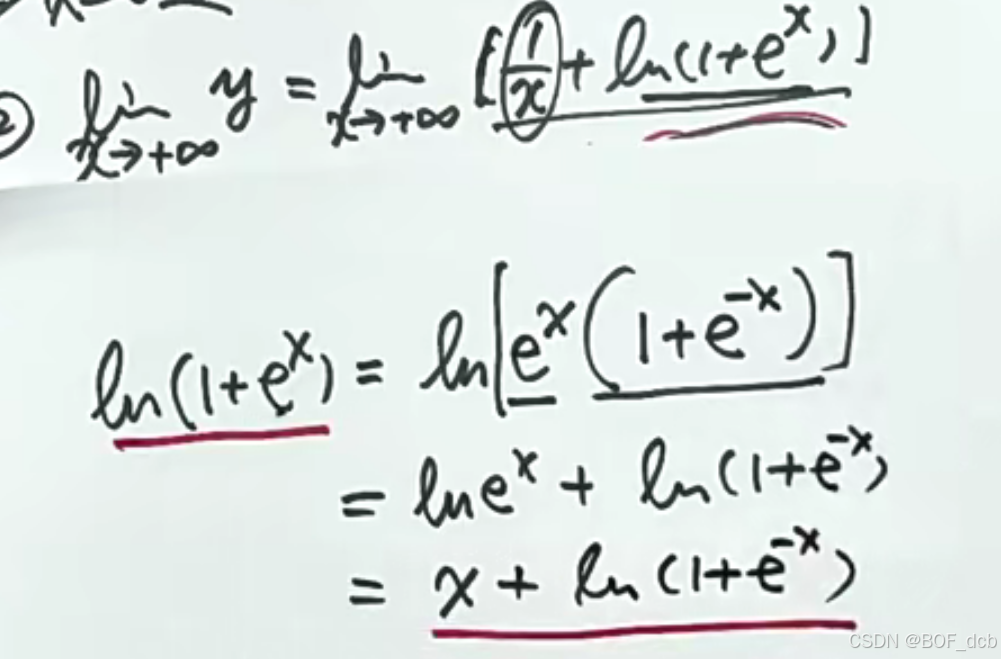 ② lim_{x→+∞} y = lim_{x→+∞} [1/x + ln(1+e^x)]
ln(1+e^x) = ln[e^x(1+e^{-x})]
= ln e^x + ln(1+e^{-x})
= x + ln(1+e^{-x})
CSDN @BOF_dcb